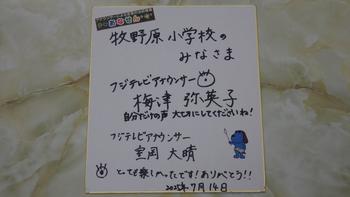 あなせん
牧野原小学校の
みなさま
フジテレビアナウンサー
梅津 弥英子
自分だけの声 大切にしてくださいね!
フジテレビアナウンサー
室岡 大晴
とっても楽しかったです!ありがとう!!
2025年7月14日